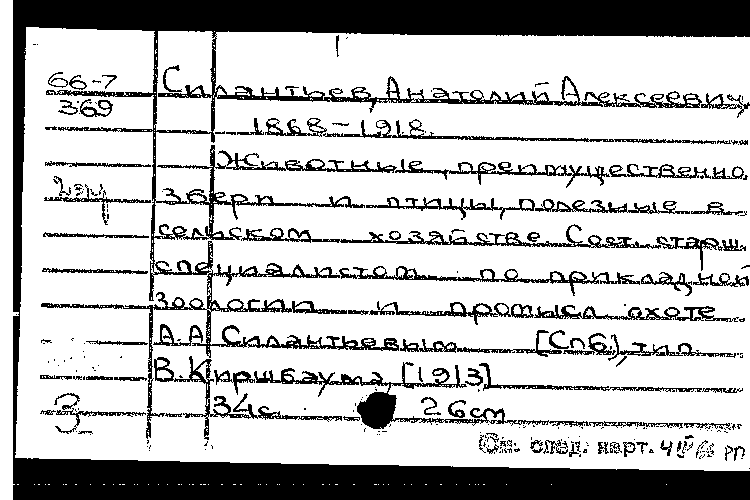 66-7 Силантьев, Анатолий Алексеевич,
369 1868-1918.
Животные, преимущественно
2эк звери и птицы, полезные в
сельском хозяйстве Сост. старш.
специалистом по прикладной
зоологии и промысл охоте
А.А Силантьевым [Спб.], тип.
В. Киршбаума, [1913]
3 34с. 26см
См. след. карт. РП